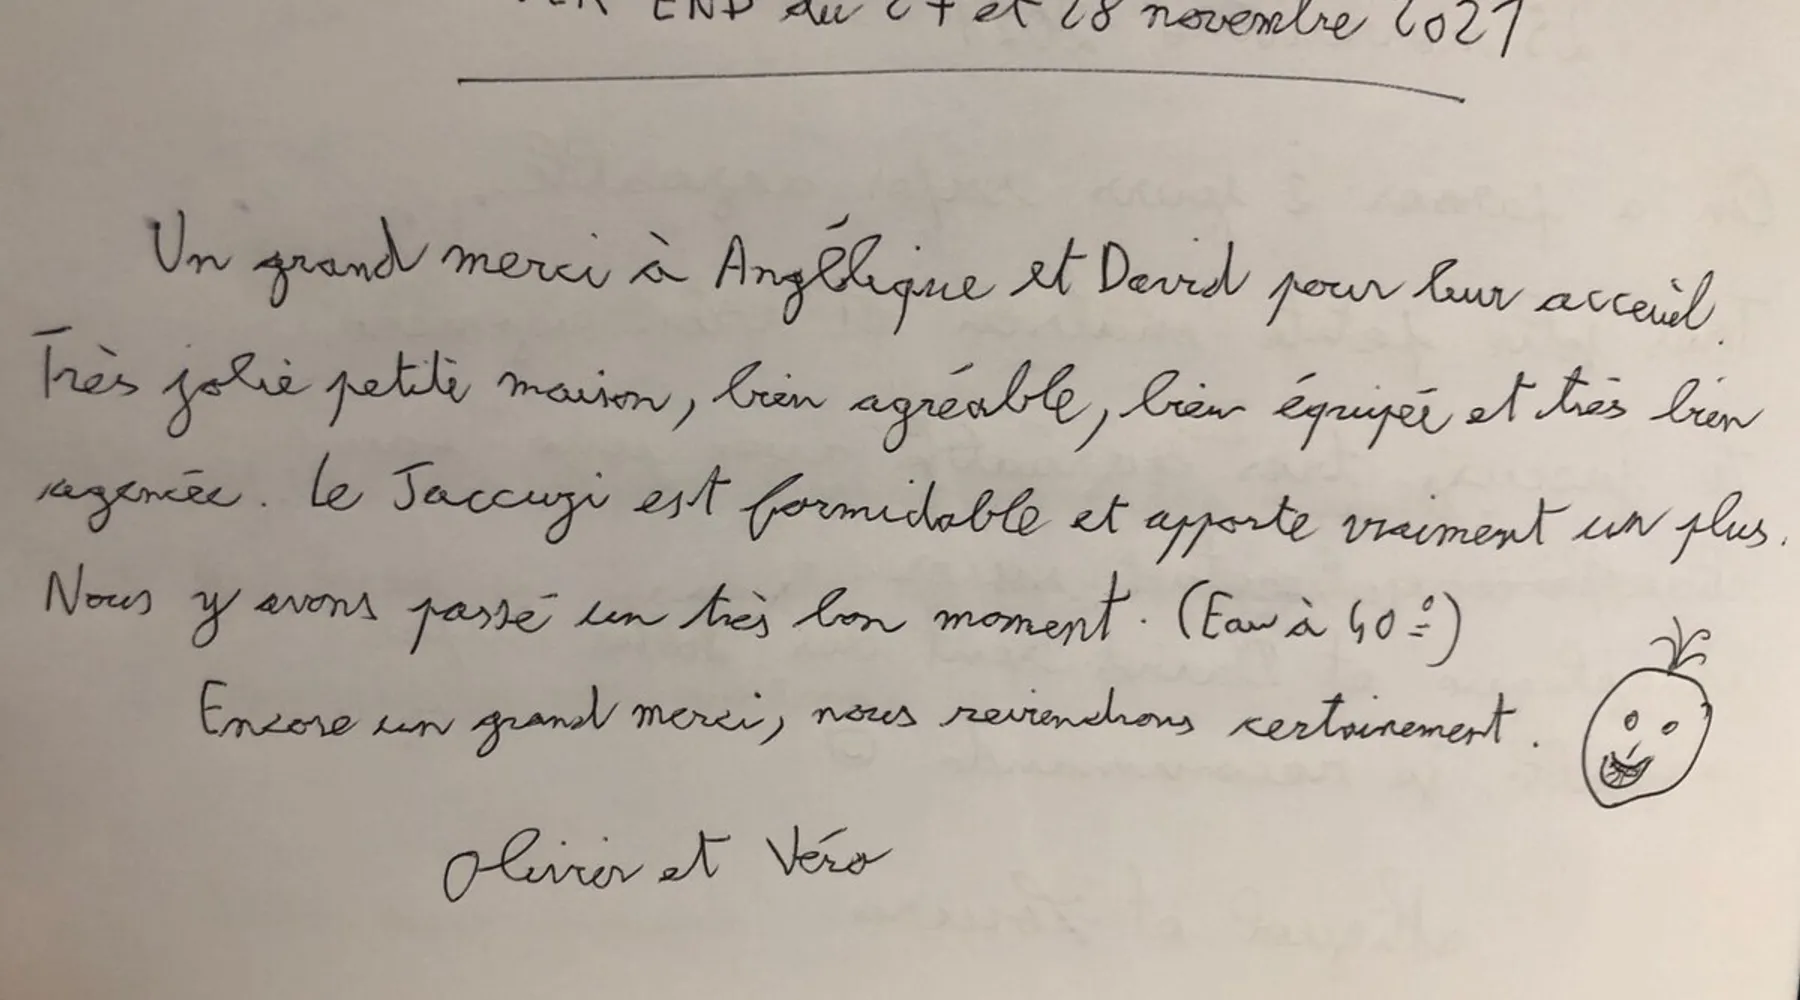 END du 27 et 28 novembre 2021
Un grand merci à Angélique et David pour leur acceuil.
Très jolie petite maison, bien agréable, bien équipée et très bien
agencée. Le Jaccuzi est formidable et apporte vraiment un plus.
Nous y avons passé un très bon moment. (Eau à 40°)
Encore un grand merci, nous reviendrons certainement.
Olivier et Véro